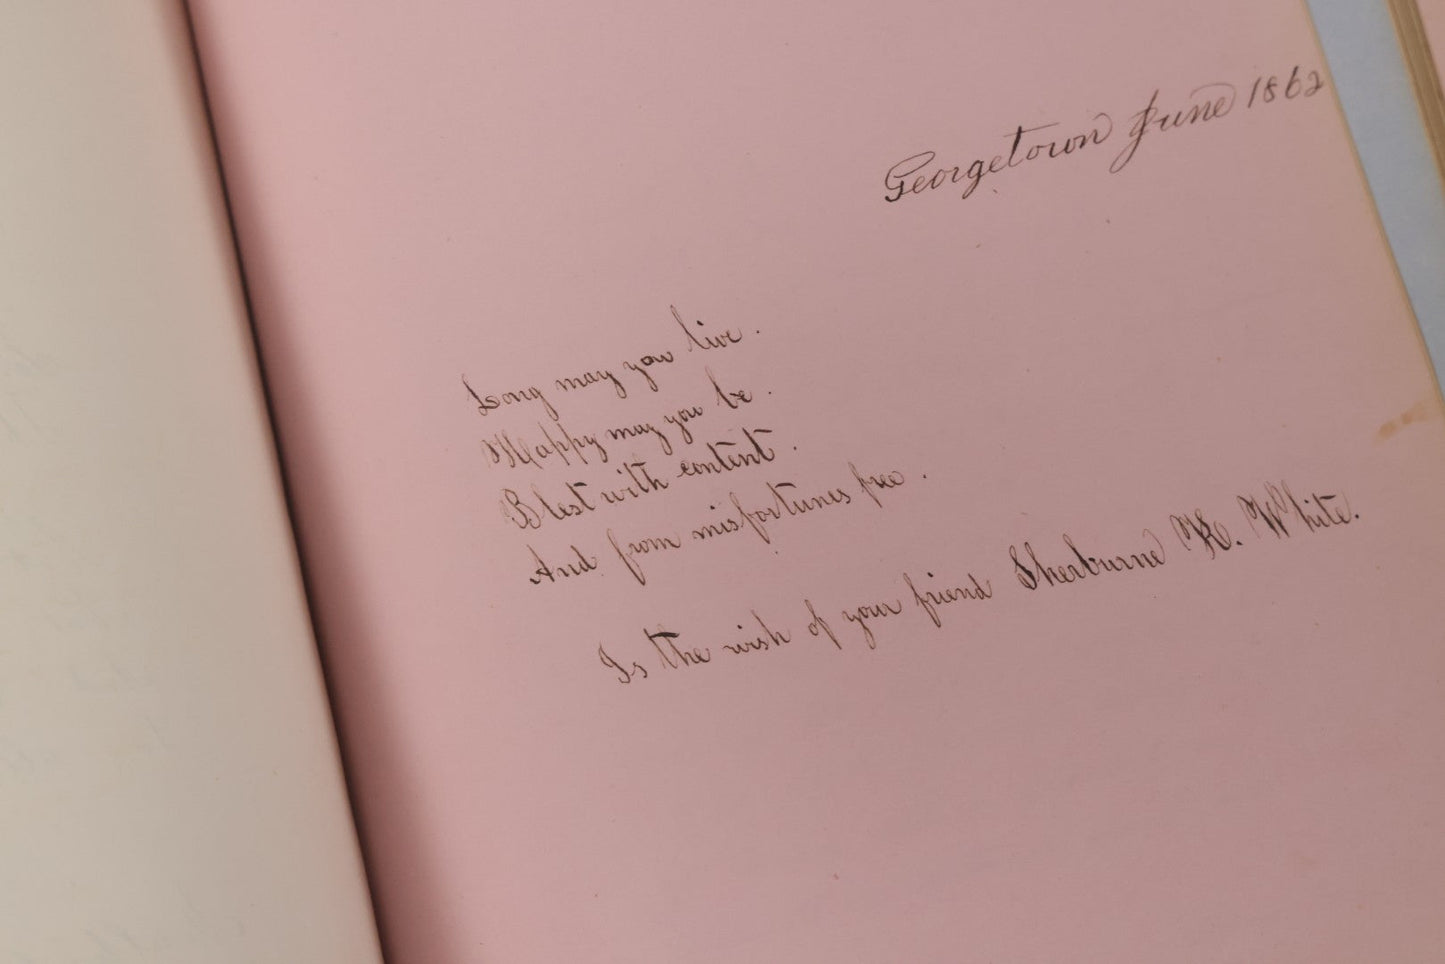 Georgetown June 1862
Long may you live.
Happy may you be.
Blest with content.
And from misfortunes free.
Is the wish of your friend Sherburne K. White.